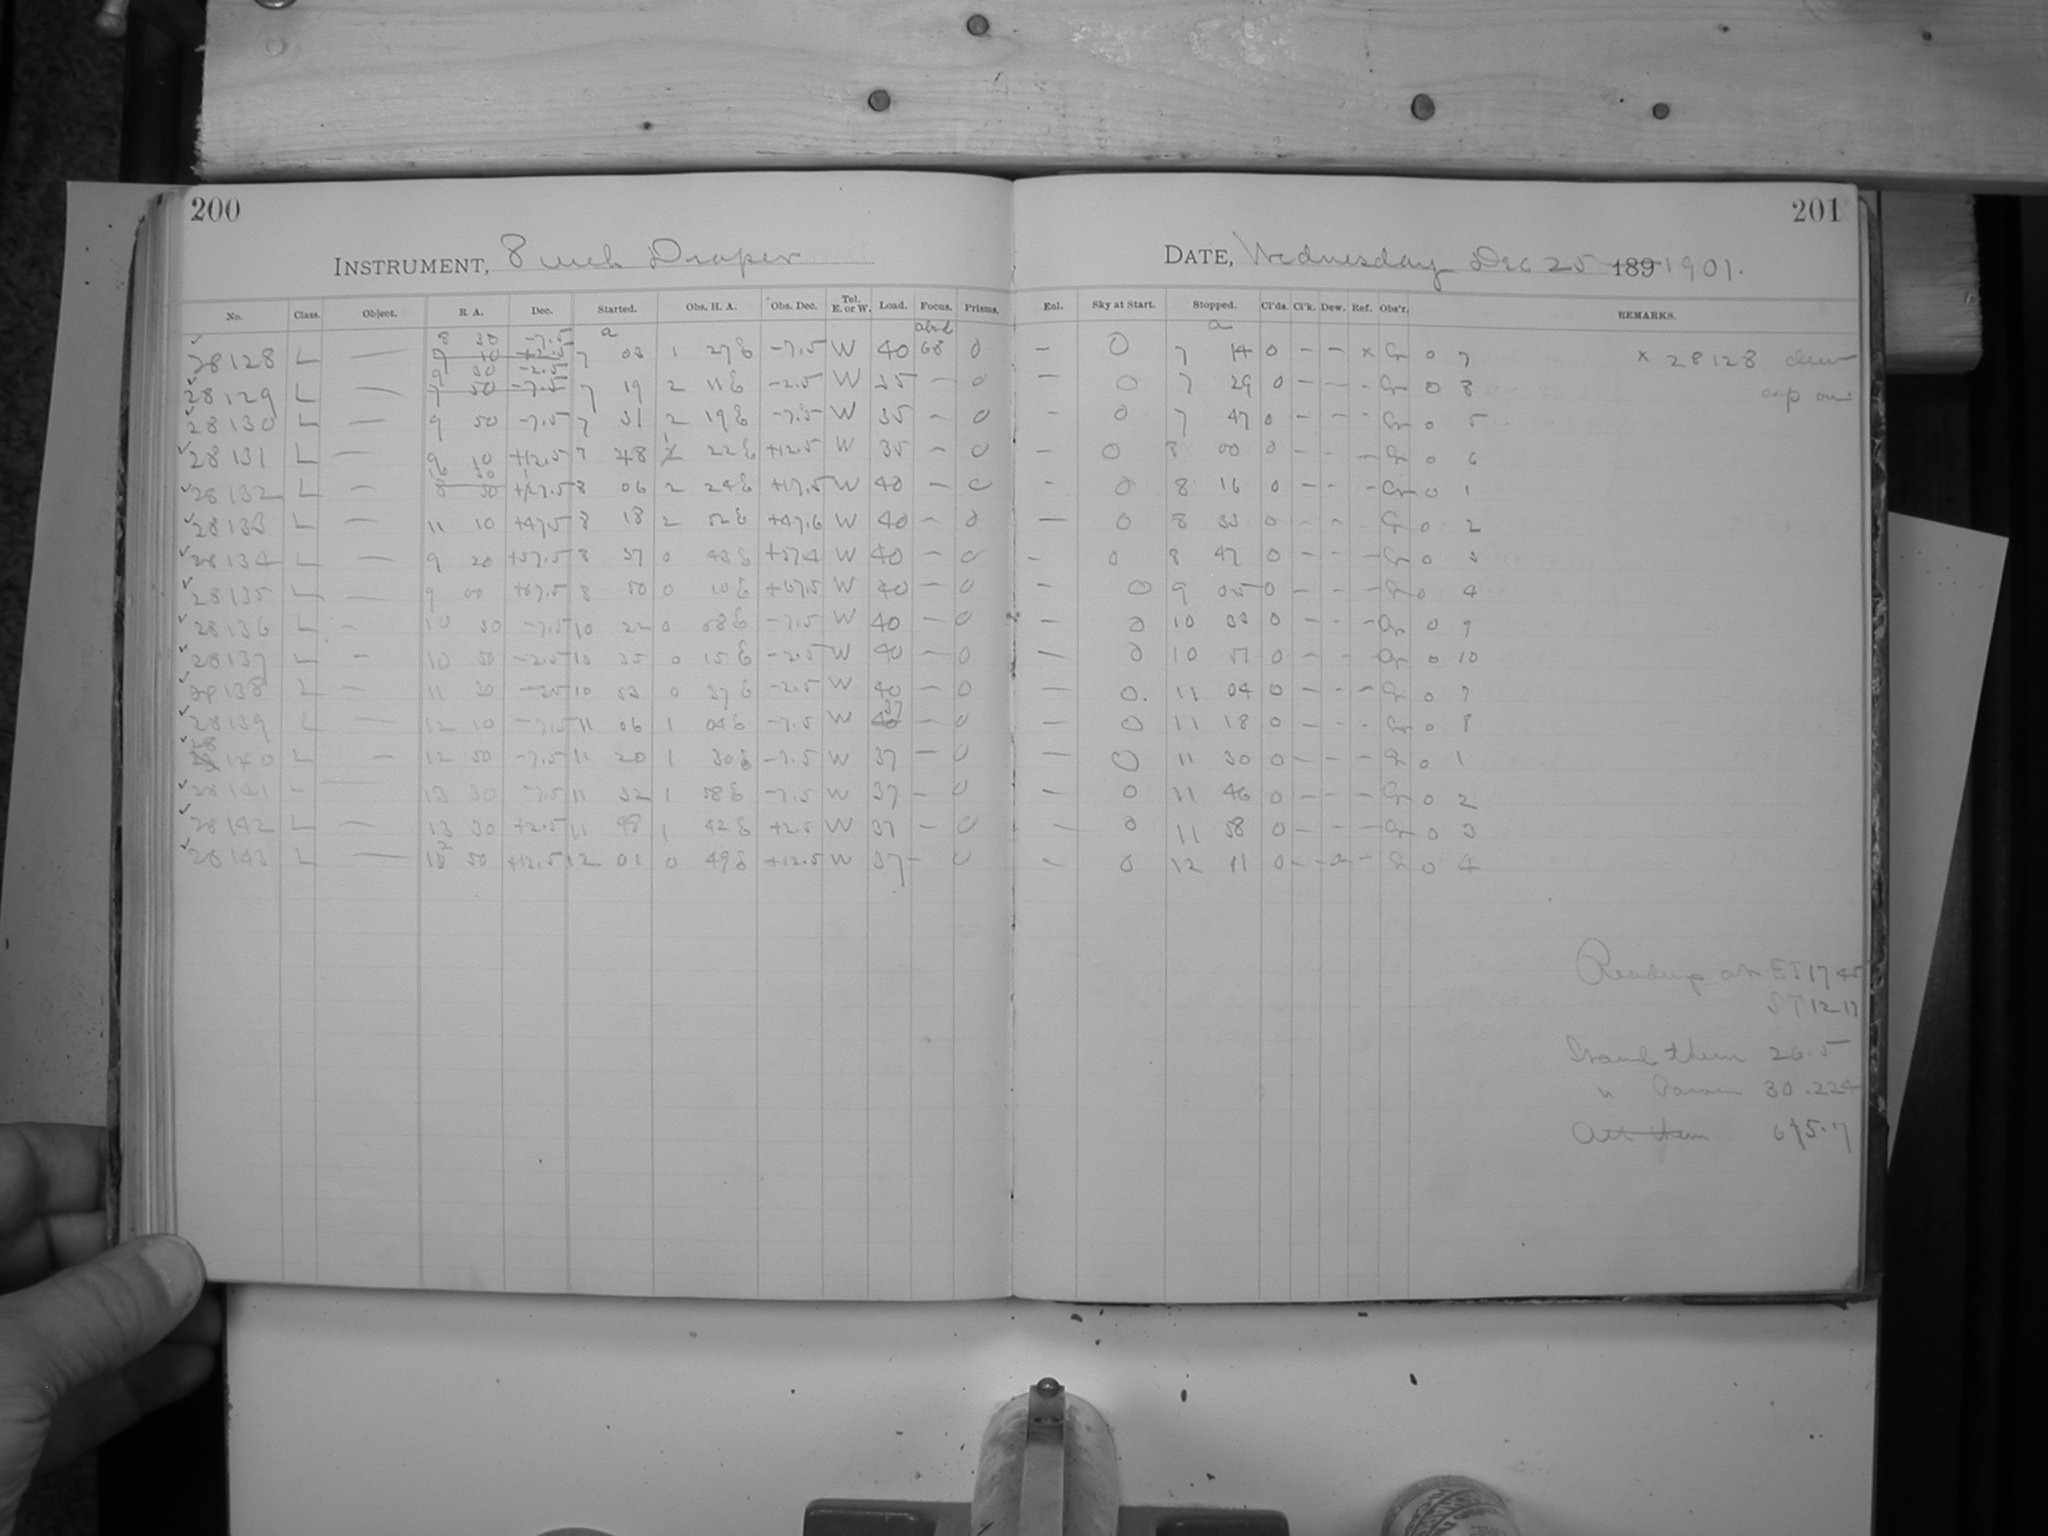 200
201
INSTRUMENT, 8 inch Draper
DATE, Wednesday Dec 25 189 1901.
No. Class. Object. R. A. Dec. Started. Obs. H. A. Obs. Dec. Tel. E. or W. Load. Focus. Prisms. Enl. Sky at Start. Stopped. Cl'ds. Cl'k. Dew. Ref. Obs'r. REMARKS.
8 30 -7.5 a a
28128 L — 7 03 1 27 E -7.5 W 40 68 0 — 0 7 14 0 – – x Gr 0 7 x 28128 dew
9 30 -2.5
28129 L — 7 50 -7.5 7 19 2 11 E -2.5 W 35 – 0 – 0 7 29 0 – – – Gr 0 8 cap on
28130 L — 9 50 -7.5 7 31 2 19 E -7.5 W 35 – 0 – 0 7 47 0 – – – Gr 0 5
28131 L — 9 10 +12.5 7 48 1 22 E +12.5 W 35 – 0 – 0 8 00 0 – – – Gr 0 6
10 30
28132 L – 8 50 +17.5 8 06 2 24 E +17.5 W 40 – 0 – 0 8 16 0 – – – Gr 0 1
28133 L – 11 10 +47.5 8 18 2 52 E +47.6 W 40 – 0 — 0 8 33 0 – – – Gr 0 2
28134 L — 9 20 +57.5 8 37 0 43 E +57.4 W 40 – 0 – 0 8 47 0 – – – Gr 0 3
28135 L — 9 00 +67.5 8 50 0 10 E +67.5 W 40 – 0 – 0 9 05 0 – – – Gr 0 4
28136 L – 10 30 -7.5 10 22 0 08 E -7.5 W 40 – 0 – 0 10 33 0 – – – Gr 0 9
28137 L – 10 50 -2.5 10 35 0 15 E -2.5 W 40 – 0 — 0 10 51 0 – – – Gr 0 10
28138 L – 11 30 -2.5 10 53 0 37 E -2.5 W 40 – 0 — 0 11 04 0 – – – Gr 0 7
28139 L — 12 10 -7.5 11 06 1 04 E -7.5 W 37 – 0 — 0 11 18 0 – – – Gr 0 8
28140 L – 12 50 -7.5 11 20 1 30 E -7.5 W 37 – 0 — 0 11 30 0 – – – Gr 0 1
28141 – — 13 30 -7.5 11 32 1 58 E -7.5 W 37 – 0 – 0 11 46 0 – – – Gr 0 2
28142 L — 13 30 +2.5 11 48 1 42 E +2.5 W 37 – 0 – 0 11 58 0 – – – Gr 0 3
28143 L — 12 50 +12.5 12 01 0 49 E +12.5 W 37 – 0 – 0 12 11 0 – – – Gr 0 4
Readings at ET 17 45
ST 12 17
Stand therm 26.5
" Barom 30.224
Att therm 65.7